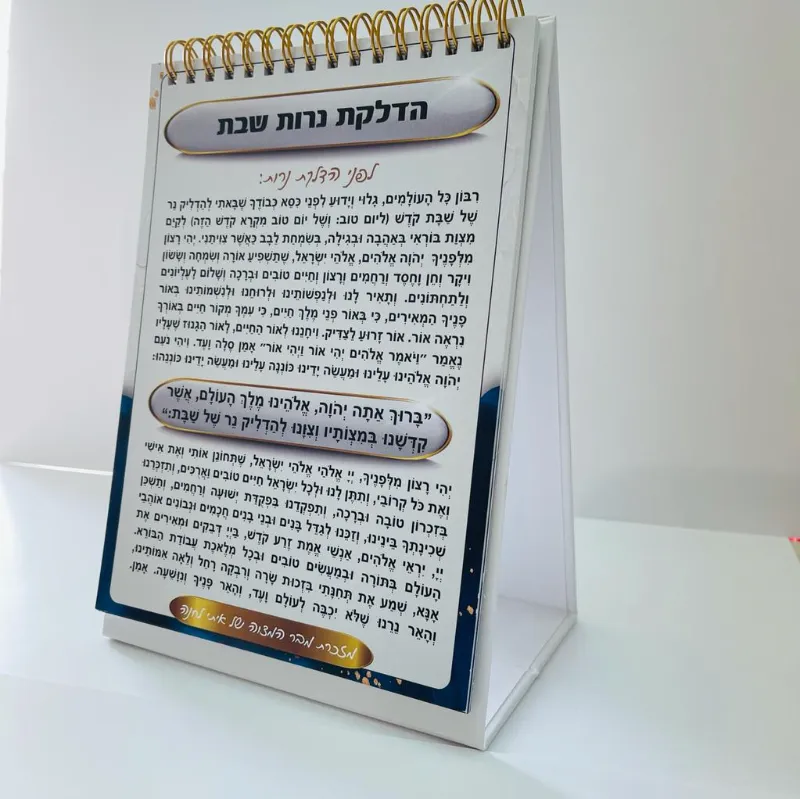 הדלקת נרות שבת
לפני הדלקת נרות:
רִבּוֹן כָּל הָעוֹלָמִים, גָּלוּי וְיָדוּעַ לִפְנֵי כִּסֵּא כְבוֹדֶךָ שֶׁבָּאתִי לְהַדְלִיק נֵר
שֶׁל שַׁבַּת קֹדֶשׁ (ליום טוב: וְשֶׁל יוֹם טוֹב מִקְרָא קֹדֶשׁ הַזֶּה) לְקַיֵּם
מִצְוַת בּוֹרְאִי בְּאַהֲבָה וּבְגִילָה, בְּשִׂמְחַת לֵבָב כַּאֲשֶׁר צִוִּיתַנִי. יְהִי רָצוֹן
מִלְּפָנֶיךָ יְהֹוָה אֱלֹהִים, אֱלֹהֵי יִשְׂרָאֵל, שֶׁתַּשְׁפִּיעַ אוֹרָה וְשִׂמְחָה וְשָׂשׂוֹן
וִיקָר וְחֵן וָחֶסֶד וְרַחֲמִים וְרָצוֹן וְחַיִּים טוֹבִים וּבְרָכָה וְשָׁלוֹם לָעֶלְיוֹנִים
וְלַתַּחְתּוֹנִים. וְתָאִיר לָנוּ וּלְנַפְשׁוֹתֵינוּ וּלְרוּחֵנוּ וּלְנִשְׁמוֹתֵינוּ בְּאוֹר
פָּנֶיךָ הַמְּאִירִים, כִּי בְּאוֹר פְּנֵי מֶלֶךְ חַיִּים, כִּי עִמְּךָ מְקוֹר חַיִּים בְּאוֹרְךָ
נִרְאֶה אוֹר. אוֹר זָרוּעַ לַצַּדִּיק. וִיחָנֵנוּ לְאוֹר הַחַיִּים, לָאוֹר הַגָּנוּז שֶׁעָלָיו
נֶאֱמַר "וַיֹּאמֶר אֱלֹהִים יְהִי אוֹר וַיְהִי אוֹר" אָמֵן סֶלָה וָעֶד. וִיהִי נֹעַם
יְהֹוָה אֱלֹהֵינוּ עָלֵינוּ וּמַעֲשֵׂה יָדֵינוּ כּוֹנְנָה עָלֵינוּ וּמַעֲשֵׂה יָדֵינוּ כּוֹנְנֵהוּ:
"בָּרוּךְ אַתָּה יְהֹוָה, אֱלֹהֵינוּ מֶלֶךְ הָעוֹלָם, אֲשֶׁר
קִדְּשָׁנוּ בְּמִצְוֹתָיו וְצִוָּנוּ לְהַדְלִיק נֵר שֶׁל שַׁבָּת:"
יְהִי רָצוֹן מִלְּפָנֶיךָ, יְיָ אֱלֹהַי אֱלֹהֵי יִשְׂרָאֵל, שֶׁתְּחוֹנֵן אוֹתִי וְאֶת אִישִׁי
וְאֶת כֹּל קְרוֹבַי, וְתִתֵּן לָנוּ וּלְכָל יִשְׂרָאֵל חַיִּים טוֹבִים וַאֲרֻכִּים, וְתִזְכְּרֵנוּ
בְּזִכְרוֹן טוֹבָה וּבְרָכָה, וְתִפְקְדֵנוּ בִּפְקֻדַּת יְשׁוּעָה וְרַחֲמִים, וְתַשְׁכֵּן
שְׁכִינָתְךָ בֵּינֵינוּ, וְזַכֵּנוּ לְגַדֵּל בָּנִים וּבְנֵי בָנִים חֲכָמִים וּנְבוֹנִים אוֹהֲבֵי
יְיָ, יִרְאֵי אֱלֹהִים, אַנְשֵׁי אֱמֶת זֶרַע קֹדֶשׁ, בַּיְיָ דְּבֵקִים וּמְאִירִים אֶת
הָעוֹלָם בַּתּוֹרָה וּבְמַעֲשִׂים טוֹבִים וּבְכָל מְלֶאכֶת עֲבוֹדַת הַבּוֹרֵא.
אָנָּא, שְׁמַע אֶת תְּחִנָּתִי בִּזְכוּת שָׂרָה וְרִבְקָה רָחֵל וְלֵאָה אִמּוֹתֵינוּ,
וְהָאֵר נֵרֵנוּ שֶׁלֹּא יִכְבֶּה לְעוֹלָם וָעֶד, וְהָאֵר פָּנֶיךָ וְנִוָּשֵׁעָה. אָמֵן.
מזכרת מבר המצוה של איתי לחנה